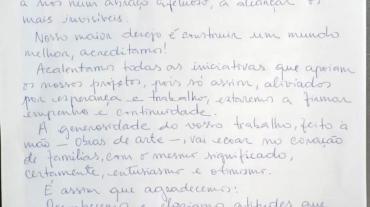 a nos num abraço afetuoso, a alcançar os
mais invisíveis.
Nosso maior desejo é construir um mundo
melhor, acreditamo!
Acalentamos todas as iniciativas que apoiam
os nossos projetos, pois só assim, aliviados
por esperança e trabalho, estaremos a firmar
empenho e continuidade.
A generosidade do vosso trabalho, feito à
mão – obras de arte –, vai ecoar no coração
de famílias, com o mesmo significado,
certamente, entusiasmo e otimismo.
É assim que agradecemos:
e elogiamos atitudes que